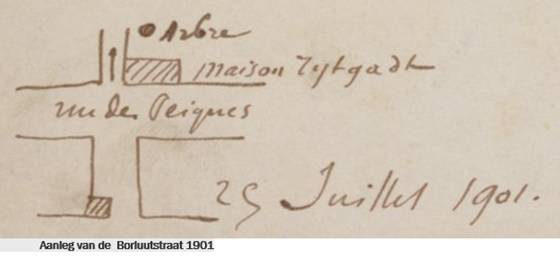 Arbre
maison Zytgadt
rue des Peignes
25 Juillet 1901.
Aanleg van de Borluutstraat 1901